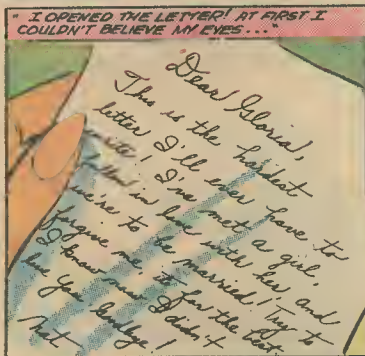 " I OPENED THE LETTER! AT FIRST I
COULDN'T BELIEVE MY EYES..."
Dear Gloria,
This is the hardest
letter I'll ever have to
write! I've met a girl,
fallen in love with her, and
we're to be married! Try to
forgive me, it's for the best.
I know now I didn't
love you. Goodbye!